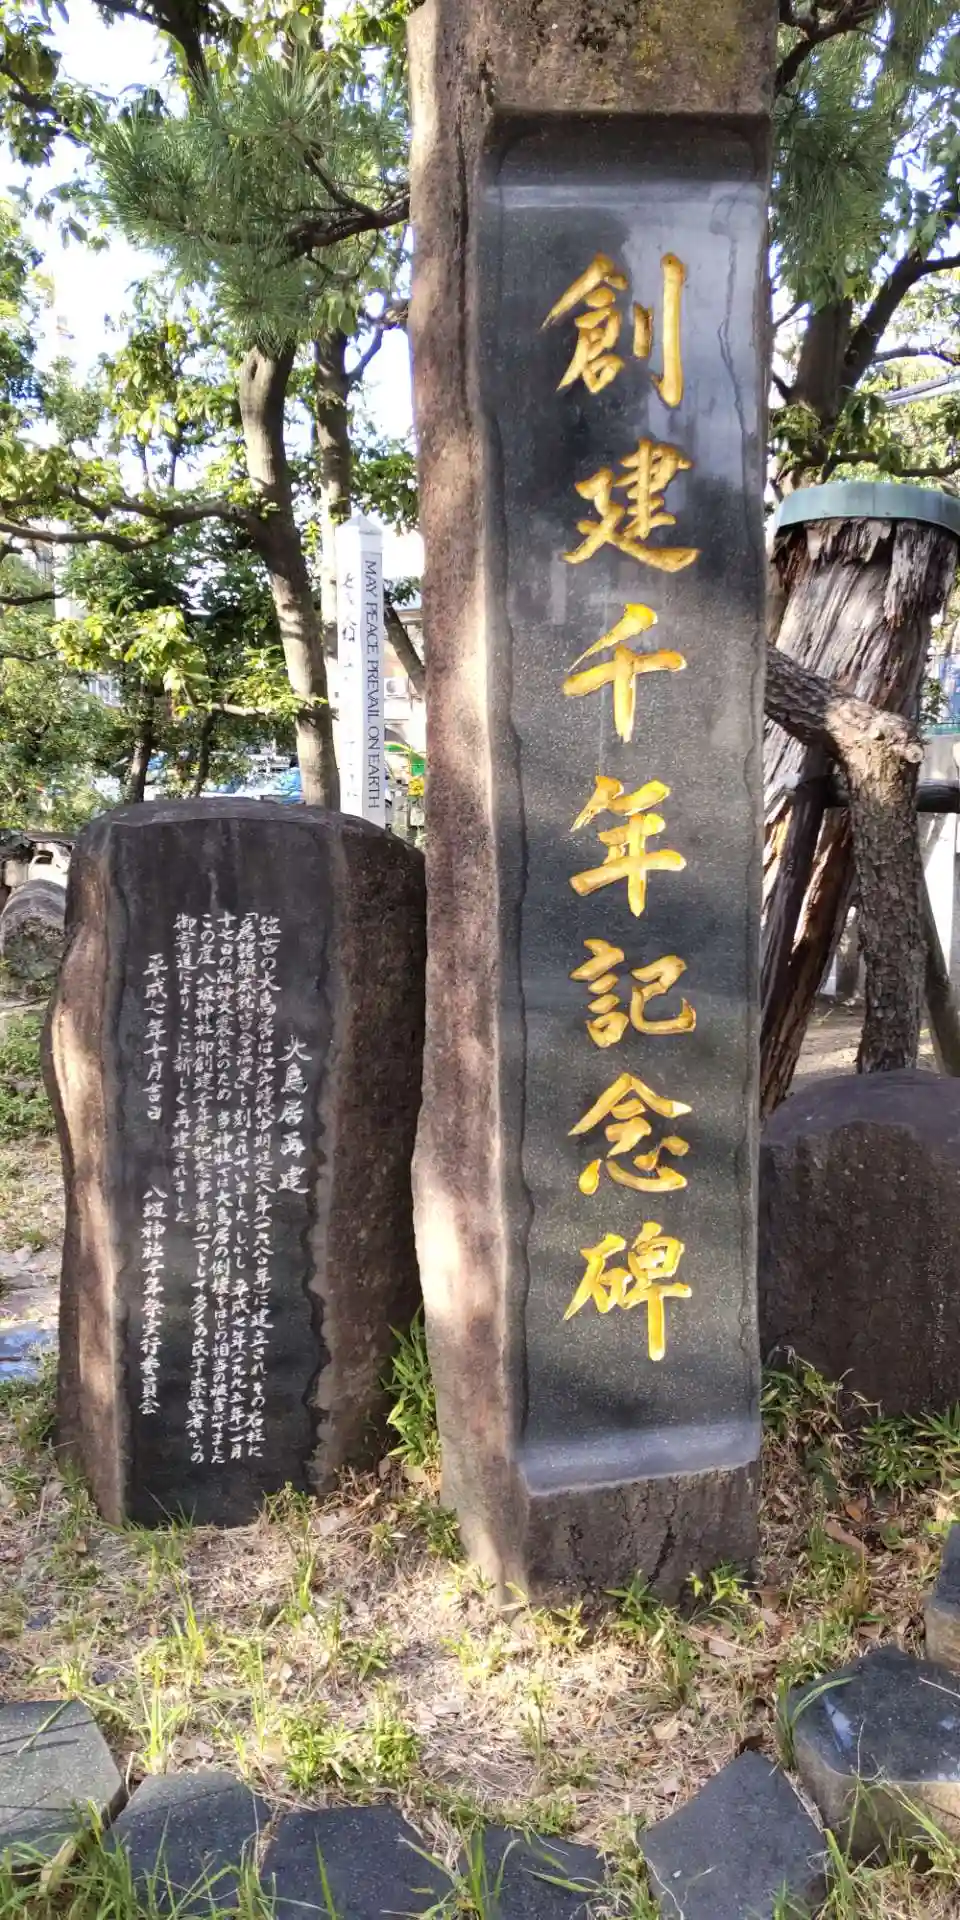 創建千年記念碑
大鳥居再建
往古の大鳥居は江戸時代中期延宝八年(一六八〇年)に建立され、その石柱に
「為諸願成就皆令満足」と刻されていました。しかし 平成七年(一九九五年)一月
十七日の阪神大震災のため 当神社では大鳥居の倒壊をはじめ相当の被害がでました
この度 八坂神社御創建千年祭記念事業の一つとして多くの氏子崇敬者からの
御寄進により ここに新しく再建されました
平成七年十月吉日 八坂神社千年祭実行委員会
MAY PEACE PREVAIL ON EARTH